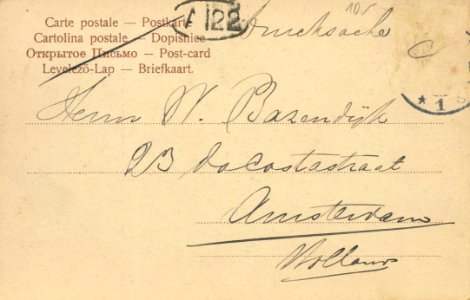 Carte postale — Postkarte
Cartolina postale — Dopisnice
Открытое Письмо — Post-card
Levelező-Lap — Briefkaart.
122
10.
Drucksache
* 1
Herrn W. Barendijk
23 da Costastraat
Amsterdam
Holland